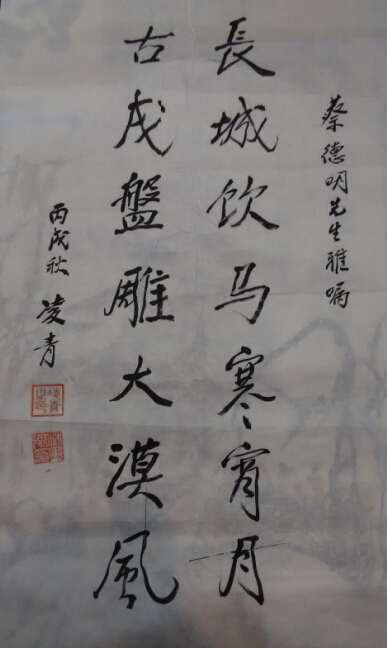 蔡德明先生雅嘱
長城饮马寒宵月
古戍盤雕大漠風
丙戌秋 凌青